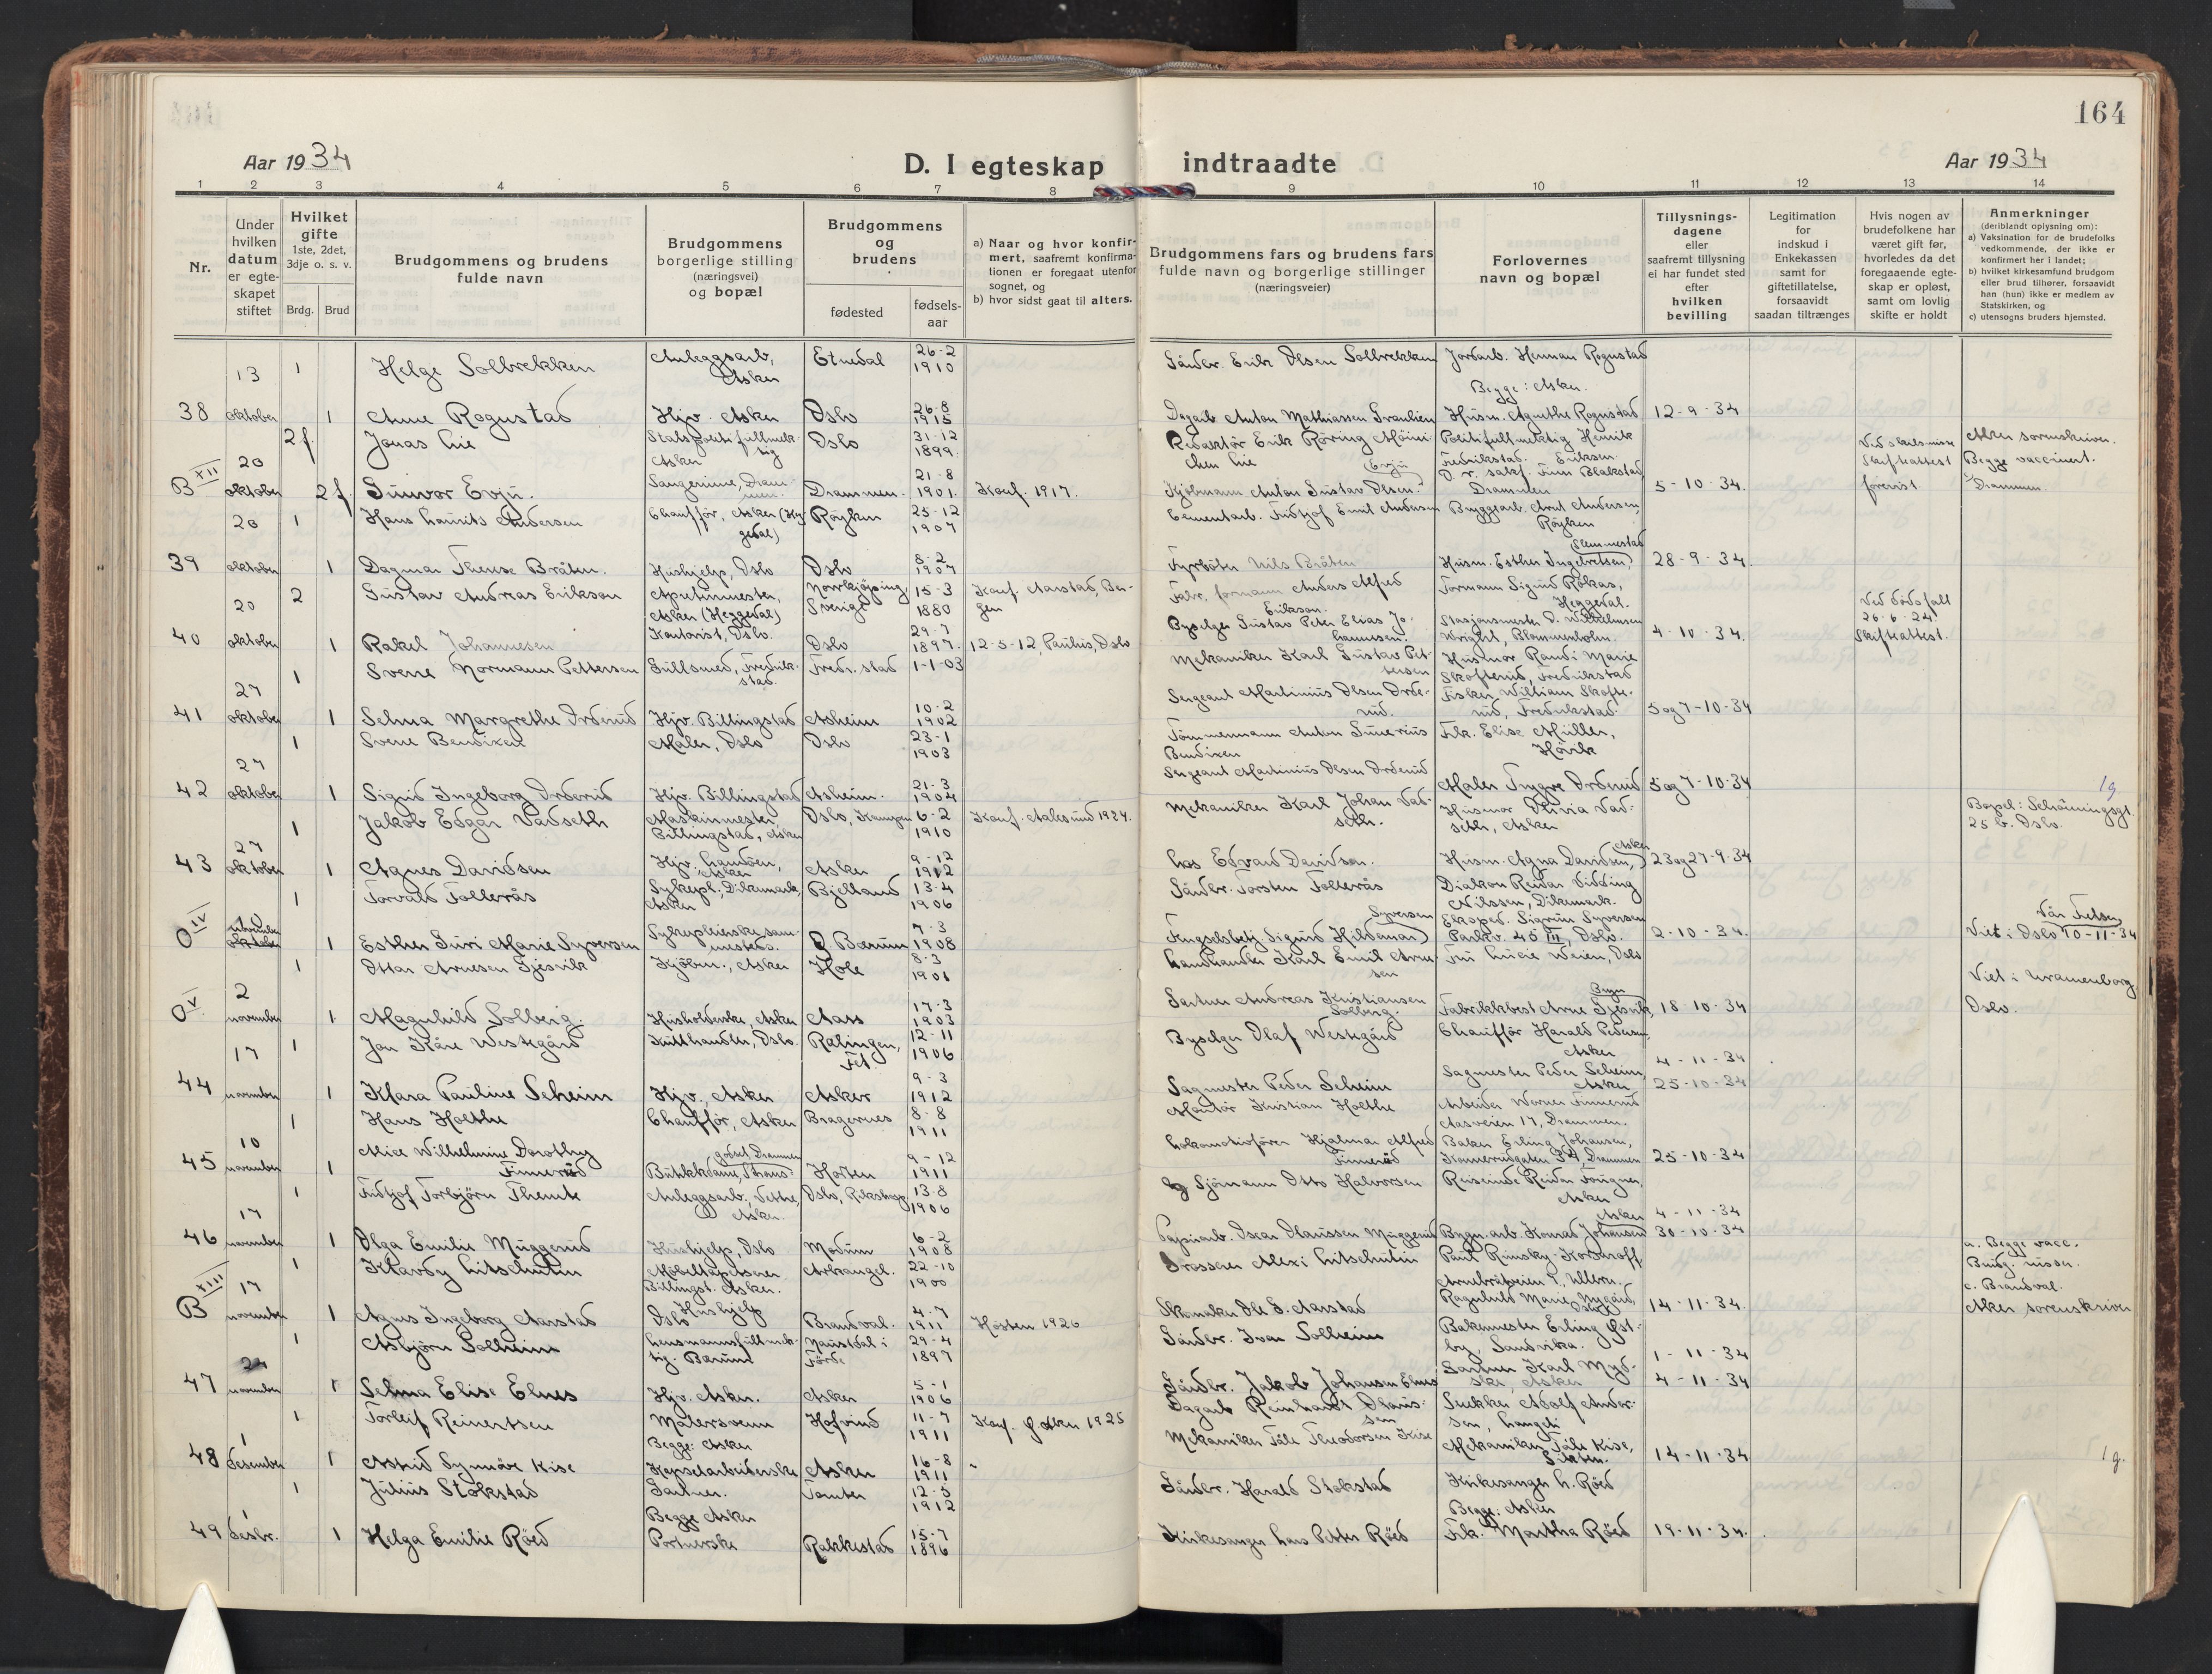 164
Aar 1934
D. I egteskap
indtraadte
Aar 1934
1 2 3 4 5 6 7 8 9 10 11 12 13 14
Nr.
Under hvilken datum er egte-skapet stiftet
Hvilket gifte
1ste, 2det, 3dje o. s. v.
Brdg. Brud
Brudgommens og brudens fulde navn
Brudgommens borgerlige stilling (næringsvei) og bopæl
Brudgommens og brudens
fødested
fødsels-aar
a) Naar og hvor konfir-mert, saafremt konfirma-tionen er foregaat utenfor sognet, og
b) hvor sidst gaat til alters.
Brudgommens fars og brudens fars fulde navn og borgerlige stillinger (næringsveier)
Forlovernes navn og bopæl
Tillysnings-dagene eller saafremt tillysning ei har fundet sted efter hvilken bevilling
Legitimation for indskud i Enkekassen samt for giftetillatelse, forsaavidt saadan tiltrænges
Hvis nogen av brudefolkene har været gift før, hvorledes da det foregaaende egte-skap er opløst, samt om lovlig skifte er holdt
Anmerkninger
(deriblandt oplysning om):
a) Vaksination for de brudefolks vedkommende, der ikke er konfirmert her i landet;
b) hvilket kirkesamfund brudgom eller brud tilhører, forsaavidt han (hun) ikke er medlem av Statskirken, og
c) utensogns bruders hjemsted.
13 1 Helge Solbrekken Anleggsarb, Asker Etnedal 26-2 1910 Gårdbr. Erik Olsen Solbrekken Jordarb. Herman Rognstad
Begge: Asker.
38 oktober 1 Anne Rognstad Hjv. Asker Oslo 26-8 1915 Husm. Agnethe Rognstad 12-9-34
2 f. Jonas Lie Statspolitifullmek-tig Asker Oslo 31-12 1899. Redaktör Erik Röring Möini-chen Lie Politifullmektig Henrik Eriksen Fredrikstad. Ved skilsmisse Skifteattest Aker sorenskriver. Begge vaccinert.
B XII 20 oktober 2 f. Gunvor Evju. Drammen. 21-8 1901. Konf. 1917. Kjöbmann Anton Gustav Olsen. Evju O. r. sakf. Finn Blakstad Drammen 5-10-34. forevist. Drammen.
20 1 Hans Laurits Andersen Chaufför, Asker (Heggedal) Röyken 25-12 1907 Cementarb. Fridtjof Emil Andersen Bryggearb. Arnt Andersen, Röyken
39 oktober 1 Dagmar Therese Bråten. Hushjelp, Oslo Oslo 8-2 1907 Fyrböter Nils Bråten Husm. Esther Ingebretsen, Slemmestad 28-9-34.
20 2 Gustav Andreas Erikson Asker (Heggedal) Norrkjöping Sverige 15-3 1880 Konf. Aarstad, Ber-gen Fabr. formann Anders Alfred Erikson. Formann Sigurd Rökås, Heggedal. Ved dödsfall 26-6-24.
40 oktober 1 Rakel Johannesen Kontorist, Oslo. Oslo 29-7 1897. 12-5-12, Paulus, Oslo Byselger Gustav Peter Elias Jo-hannesen. Stasjonsmester O. Wilhelmsen Wright, Blommenholm. 4-10-34. Skifteattest.
1 Sverre Normann Pettersen Gullsmed, Fredrik-stad. Fredr.stad 1-1-03 Mekaniker Karl Gustav Pet-tersen Husmor Randi Marie Skofterud, Fredrikstad
27
41 oktober 1 Selma Margrethe Orderud Hjv. Billingstad Asheim 10-2 1902 Sergeant Martinius Olsen Orde-rud. Fisker William Skofte-rud, Fredrikstad. 5 og 7-10-34
1 Sverre Bendixen Maler, Oslo Oslo 23-1 1903 Tömmermann Anton Bendixen Frk. Elise Müller, Hövik
27
42 oktober 1 Sigrid Ingeborg Orderud Hjv. Billingstad Asheim. 21-3 1904 Sergeant Martinius Olsen Orderud Maler Trygve Orderud 5 og 7-10-34 1g
1 Jakob Edgar Vadseth Maskinmester, Billingstad, Asker Oslo, Kampen 6-2 1910 Konf. Aalesund 1924. Mekaniker Karl Johan Vad-seth. Husmor Olivia Vad-seth, Asker Bopel: Schönningsgt. 25 b. Oslo.
27
43 oktober 1 Agnes Davidsen Hjv. Landöen, Asker Asker 9-12 1912 Los Edvard Davidsen. Husm. Agna Davidsen, Asker 23 og 27-9-34
1 Torvald Follerås Sykepl. Dikemark, Asker Bjelland 13-4 1906 Gårdbr. Torsten Follerås Diakon Reidar Vidding Nilssen, Dikemark.
O IV 10 november 1 Esther Guri Marie Syversen Ö. Bærum 7-3 1908 Fengselsbetj. Sigurd Hildemar Syversen Ekspd. Sigrun Syversen Parkv. 40 III, Oslo. 2-10-34. Viet i Vår Frelser, Oslo 10-11-34
1 Ottar Arnesen Gjesvik Kjöbm., Asker Hole 8-3 1901 Landhandler Karl Emil Arne-sen Fru Lucie Weien, Oslo Viet i Uranienborg
O V 2 november 1 Magnhild Solberg. Husholderske, Asker Aas 17-3 1903 Gartner Andreas Kristiansen Solberg. Fabrikkbest. Arne Gjesvik, Bryn 18-10-34 Oslo.
17 1 Jon Kåre Westegård Frukthandler, Oslo. Rælingen, Fet. 12-11 1906 Byselger Olaf Westegård Chaufför Harald Pedersen, Asker 4-11-34
44 november 1 Klara Pauline Seheim Hjv., Asker Asker 9-3 1912 Sagmester Peder Seheim Sagmester Peder Seheim, Asker 25-10-34
1 Hans Holthe Chaufför, Asker Bragernes 8-8 1911 Montör Kristian Holthe Arbeider Werner Finnerud Aasveien 17, Drammen.
10 Alice Wilhelmine Dorothy
45 november 1 Finnerud Horten 9-12 1911 Lokomotivförer Hjalmar Alfred Finnerud Baker Erling Johansen, Drammen 25-10-34
1 Fridtjof Torbjörn Themte Anleggsarb., Vettre, Asker. Oslo, Rikshosp. 13-8 1906 Sjömann Otto Halvorsen Reisende Reidar Fougner, Asker 4-11-34
17
46 november 1 Olga Emilie Muggerud Hushjelp, Oslo Modum 6-2 1908 Papirarb. Oscar Olaussen Muggerud Bygn.arb. Konrad Johansen Asker 30-10-34 a. Begge vacc.
1 Klavdy Litschutin Möbeltapetserer Billingst. Asker. Arkangel. 22-10 1900 Grosserer Alexi Litschutin Paul Rimsky-Korsakoff, Arnebråtveien 9, Ullern. Brudg. russer. c. Brandval.
B XIII 17 november 1 Agnes Ingeborg Aarstad Hushjelp Oslo Brandval. 4-7 1911 Hösten 1926 Skomaker Ole S. Aarstad Ragnhild Marie Nygård, Oslo 14-11-34. Aker sorenskriver
1 Asbjörn Solheim Lensmannsfullmek-tig. Bærum Naustdal i Förde 29-4 1897 Gårdbr. Ivar Solheim Bakermester Erling Öst-by, Sandvika. 1-11-34
24
47 november 1 Selma Elise Elnes Hjv. Asker. Asker 5-1 1906 Gårdbr. Jakob Johansen Elnes Gartner Karl Myd-ske, Asker 4-11-34
1 Torleif Reinertsen Malersvenn Hofvind 11-7 1911 Konf. Asker 1925 Dagarb. Reinhardt Olaus-sen Snekker Adolf Ander-sen, Langeli
1 Begge: Asker
48 desember 1 Astrid Synnöve Kise Kapselarbeiderske Asker 16-8 1911 Mekaniker Tåle Theodorsen Kise Mekaniker Tåle Kise, 14-11-34 1g.
1 Julius Stokstad Gartner. Tomter 12-5 1912 Gårdbr. Harald Stokstad Kirkesanger L. Röed
1 Begge Asker Begge: Asker
49 desbr. 1 Helga Emilie Röed Portnerske Rakkestad 15-7 1896 Kirkesanger Lars Petter Röed Frk. Martha Röed 19-11-34.